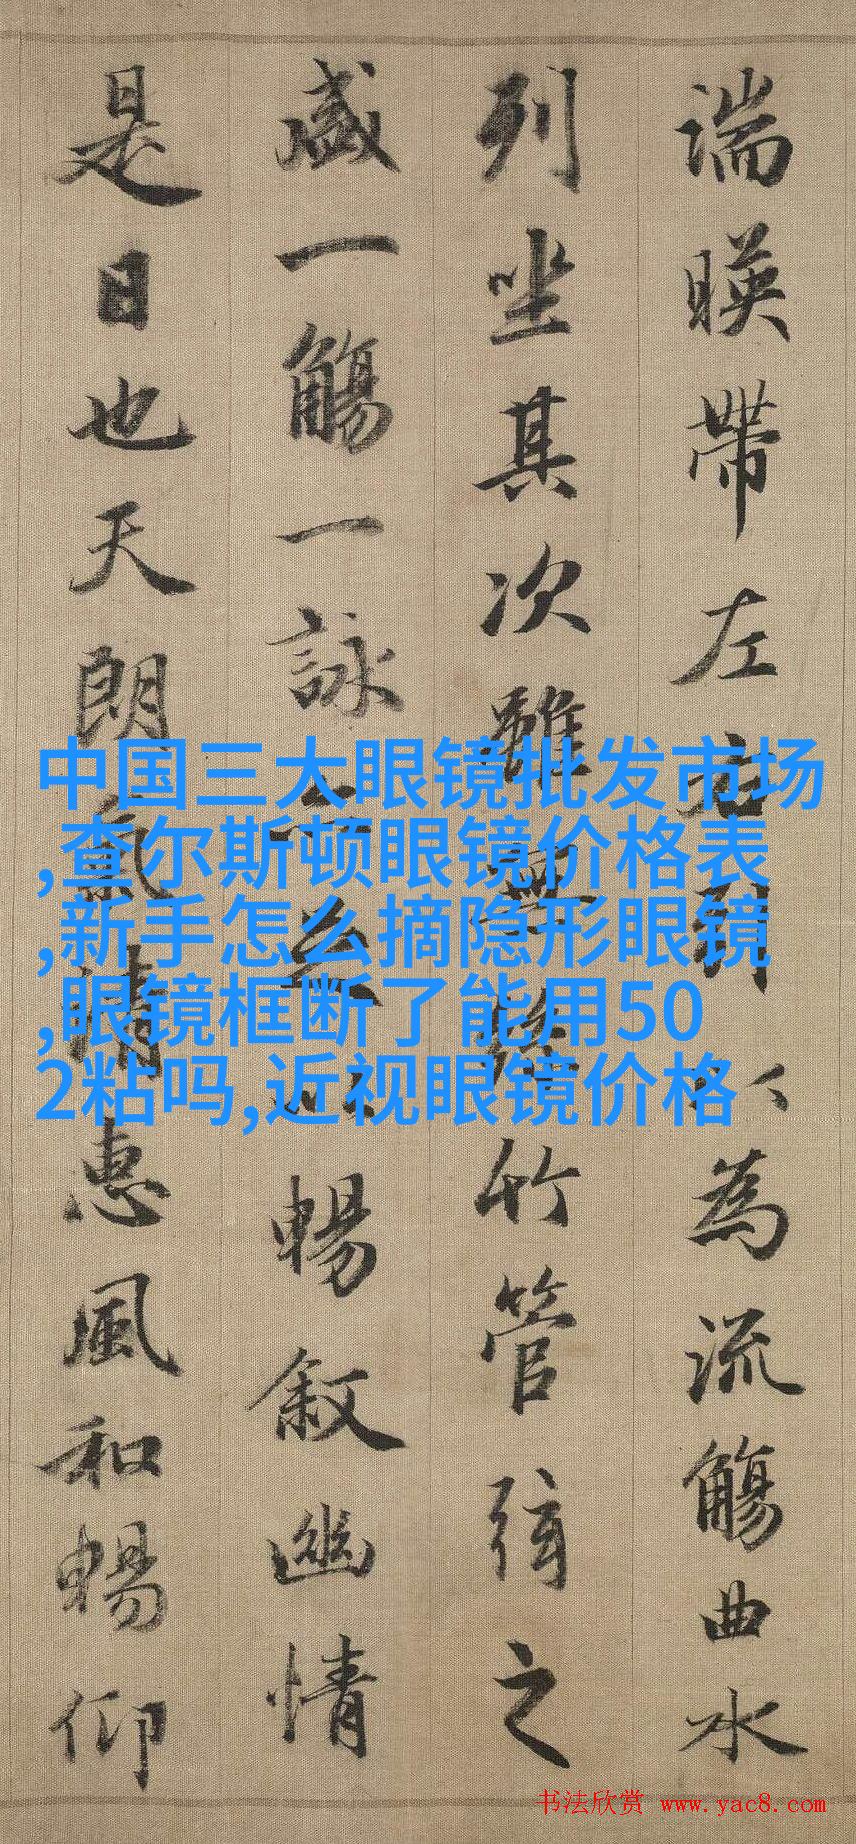 湍暎帶左右引以為流觴曲水
列坐其次雖無絲竹管弦之
盛一觴一詠亦足以暢敘幽情
是日也天朗氣清惠風和暢仰
中国三大眼镜批发市场
,查尔斯顿眼镜价格表
,新手怎么摘隐形眼镜
,眼镜框断了能用50
2粘吗,近视眼镜价格
书法欣赏 www.yac8.com